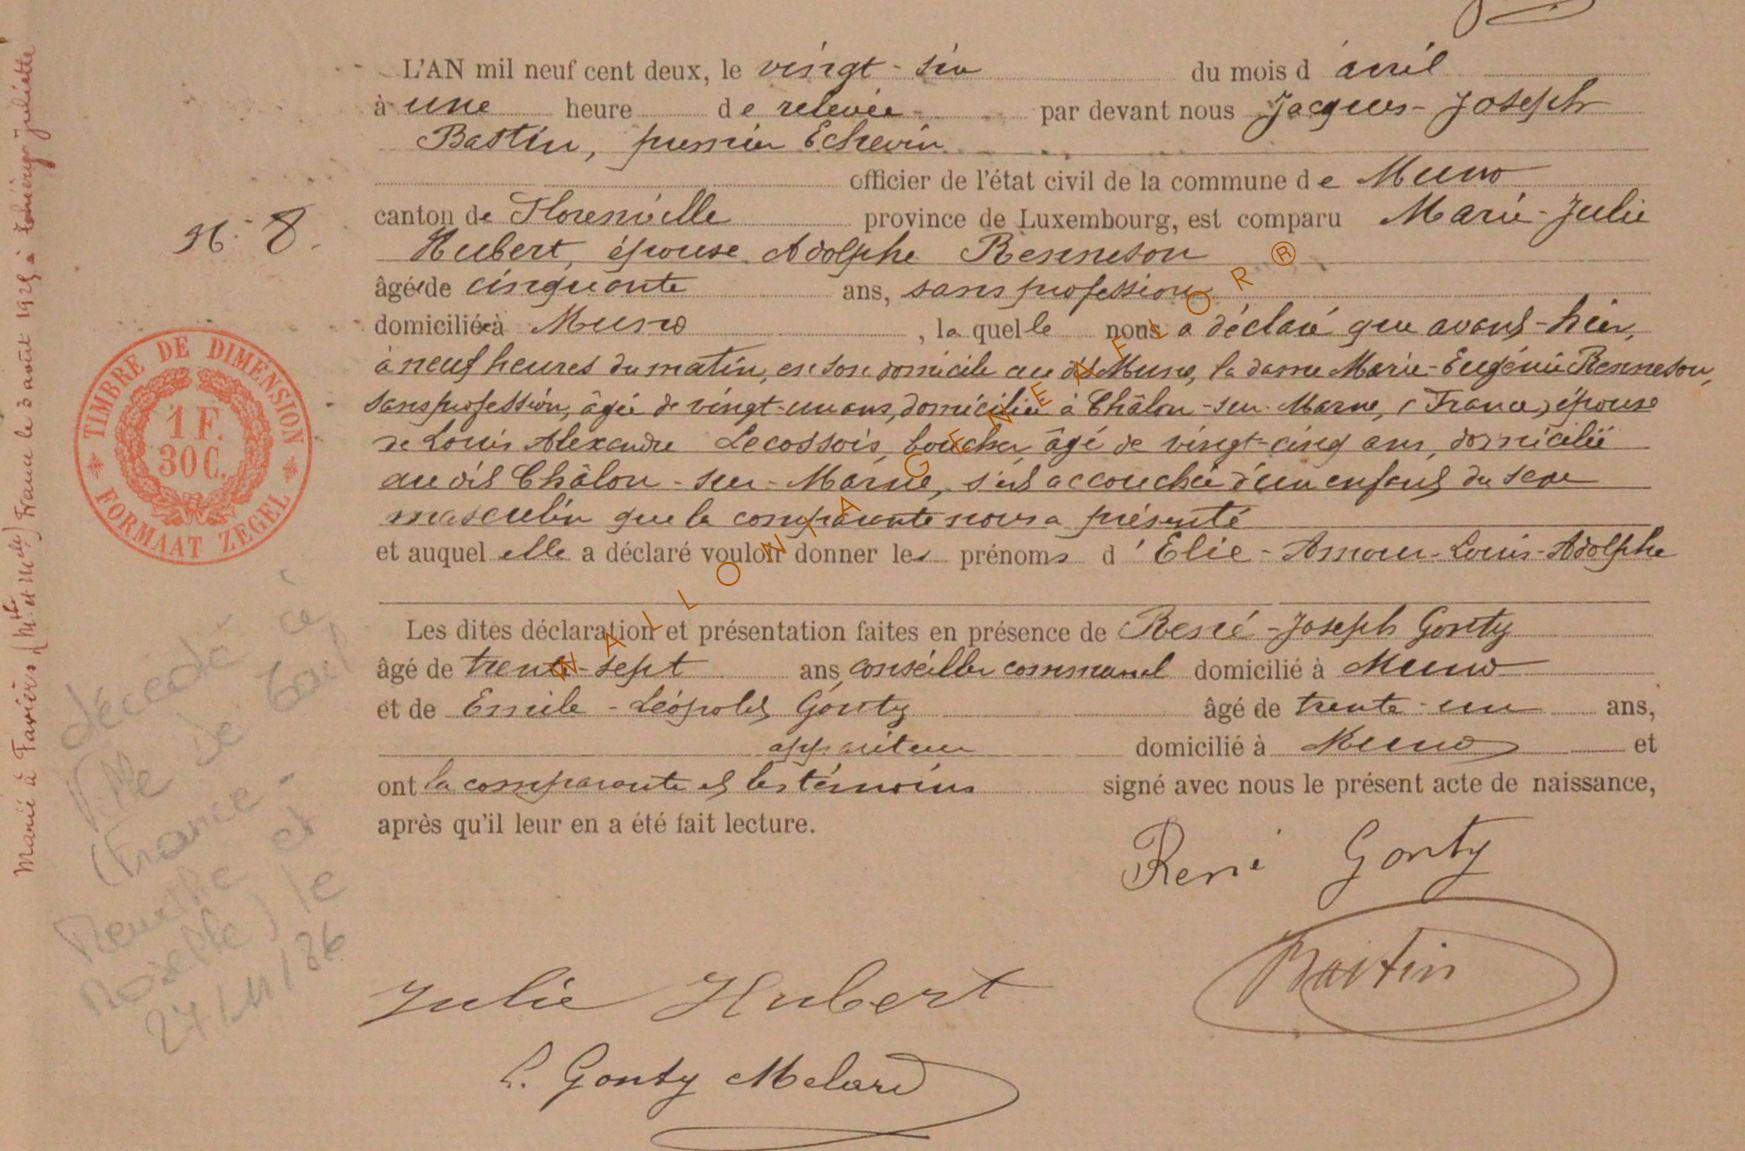 L'AN mil neuf cent deux, le vingt-six du mois d'avril
à une heure de relevée par devant nous Jacques-Joseph
Bastin, premier Echevin
officier de l'état civil de la commune de Muno
canton de Florenville province de Luxembourg, est comparu Marie-Julie
Hubert, épouse Adolphe Renneson
âgée de cinquante ans, sans profession
domiciliée à Muno, laquelle nous a déclaré que avant-hier,
à neuf heures du matin, en son domicile au dit Muno, la dame Marie-Eugénie Renneson,
sans profession, âgée de vingt-un ans, domiciliée à Châlon-sur-Marne, (France) épouse
de Louis Alexandre Lecossois, boucher, âgé de vingt-cinq ans, domicilié
au dit Châlon-sur-Marne, s'est accouchée d'un enfant du sexe
masculin que la comparante nous a présenté
et auquel elle a déclaré vouloir donner les prénoms d'Elie-Amour-Louis-Adolphe
Les dites déclaration et présentation faites en présence de René-Joseph Gonty
âgé de trente-sept ans conseiller communal domicilié à Muno
et de Emile-Léopold Gonty âgé de trente-un ans,
appariteur domicilié à Muno et
ont la comparante et les témoins signé avec nous le présent acte de naissance,
après qu'il leur en a été fait lecture.
René Gonty
Bastin
Julie Hubert
L. Gonty Melard
N° 8.
TIMBRE DE DIMENSION
1 F.
30 C.
FORMAAT ZEGEL
Marié à Pavières (Mthe et Mlle) France le 3 août 1925 à Juliette
décédé à
Ville de Toul
(France -
Meurthe et
Moselle) le
27/11/86
WALLONIA GENEALOR ®